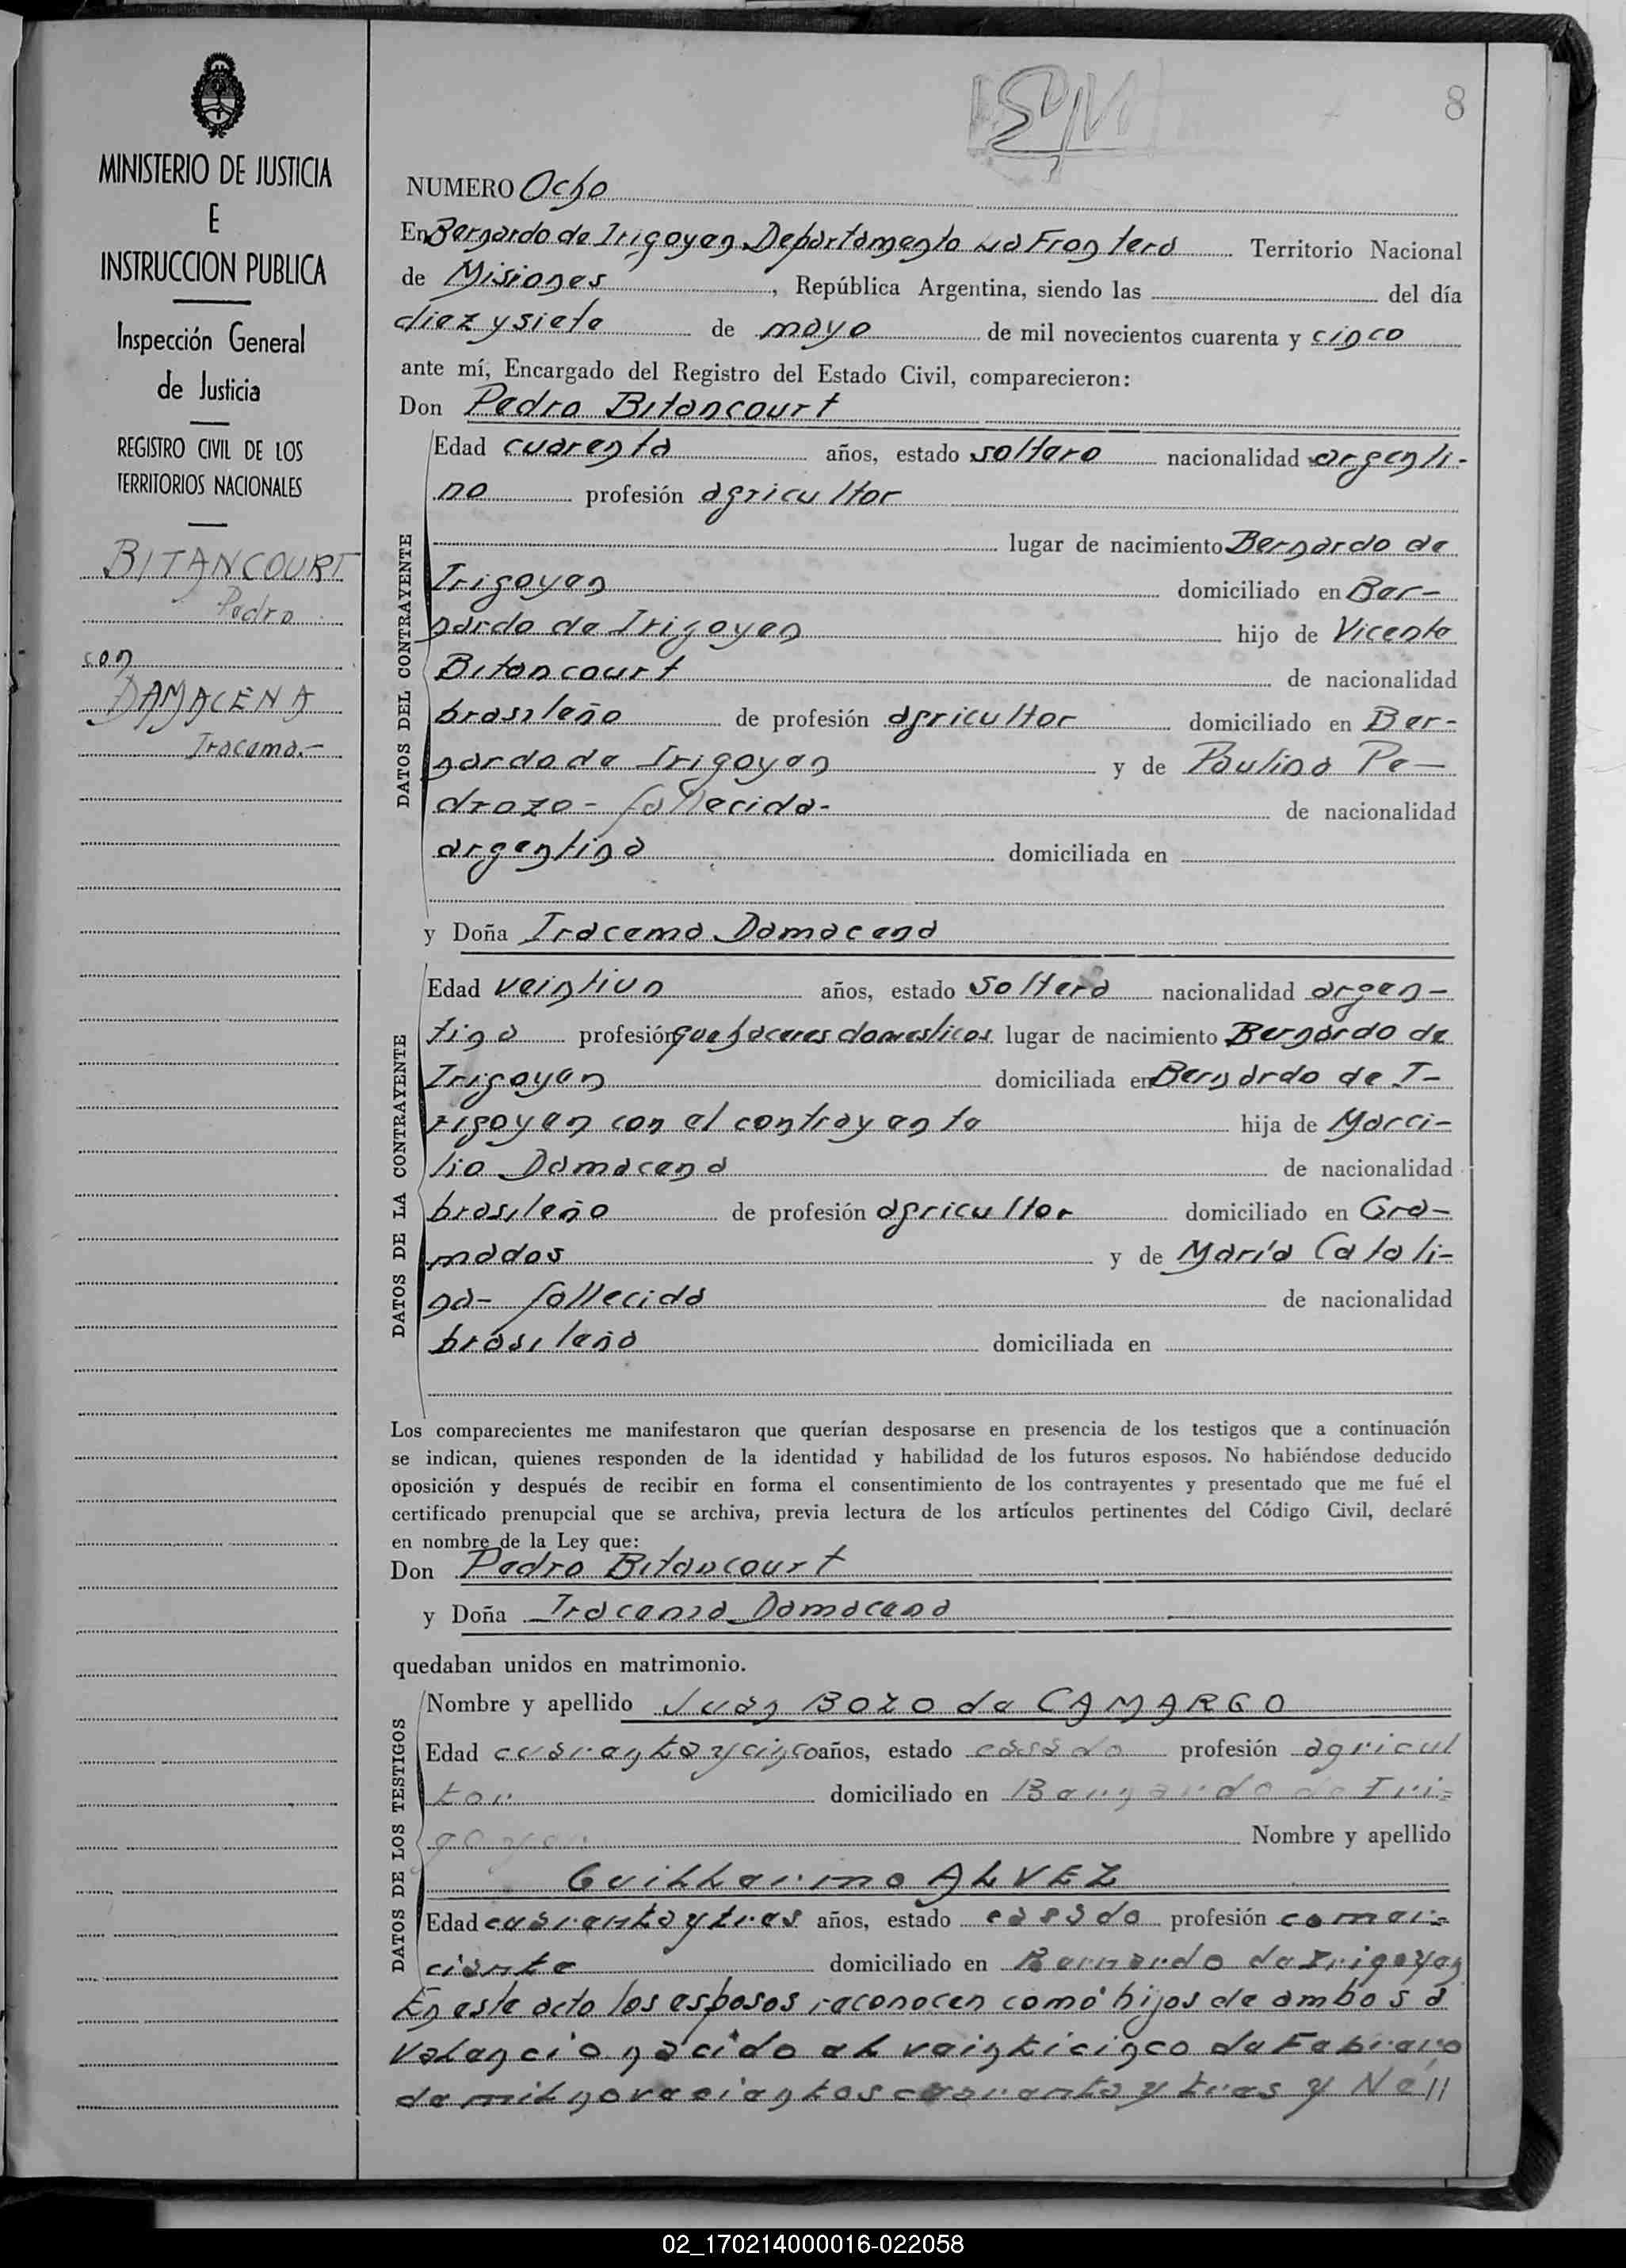 8
MINISTERIO DE JUSTICIA
E
INSTRUCCION PUBLICA
Inspección General
de Justicia
REGISTRO CIVIL DE LOS
TERRITORIOS NACIONALES
BITANCOURT
Pedro
con
DAMACENA
Iracema.-
NUMERO Ocho
En Bernardo de Irigoyen Departamento La Frontera Territorio Nacional
de Misiones, República Argentina, siendo las del día
diez y siete de mayo de mil novecientos cuarenta y cinco
ante mí, Encargado del Registro del Estado Civil, comparecieron:
Don Pedro Bitancourt
DATOS DEL CONTRAYENTE
Edad cuarenta años, estado soltero nacionalidad argenti-
no profesión agricultor
lugar de nacimiento Bernardo de
Irigoyen domiciliado en Ber-
nardo de Irigoyen hijo de Vicente
Bitancourt de nacionalidad
brasileño de profesión agricultor domiciliado en Ber-
nardo de Irigoyen y de Paulina Pe-
drozo - fallecida- de nacionalidad
argentina domiciliada en
y Doña Iracema Damacena
DATOS DE LA CONTRAYENTE
Edad veintiun años, estado Soltera nacionalidad argen-
tina profesión quehaceres domesticos lugar de nacimiento Bernardo de
Irigoyen domiciliada en Bernardo de I-
rigoyen con el contrayente hija de Marci-
lio Damacena de nacionalidad
brasileño de profesión agricultor domiciliado en Gra-
mados y de María Catali-
na- fallecida de nacionalidad
brasileña domiciliada en
Los comparecientes me manifestaron que querían desposarse en presencia de los testigos que a continuación
se indican, quienes responden de la identidad y habilidad de los futuros esposos. No habiéndose deducido
oposición y después de recibir en forma el consentimiento de los contrayentes y presentado que me fué el
certificado prenupcial que se archiva, previa lectura de los artículos pertinentes del Código Civil, declaré
en nombre de la Ley que:
Don Pedro Bitancourt
y Doña Iracema Damacena
quedaban unidos en matrimonio.
DATOS DE LOS TESTIGOS
Nombre y apellido Juan BOZO de CAMARGO
Edad cuarenta y cinco años, estado casado profesión agricul
tor domiciliado en Bernardo de Iri=
goyen Nombre y apellido
Guillermo ALVEZ
Edad cuarenta y tres años, estado casado profesión comer=
ciante domiciliado en Bernardo de Irigoyen
En este acto los esposos reconocen como hijos de ambos a
Valencio nacido el veinticinco de Febrero
de mil novecientos cuarenta y tres y Nell
02_170214000016-022058